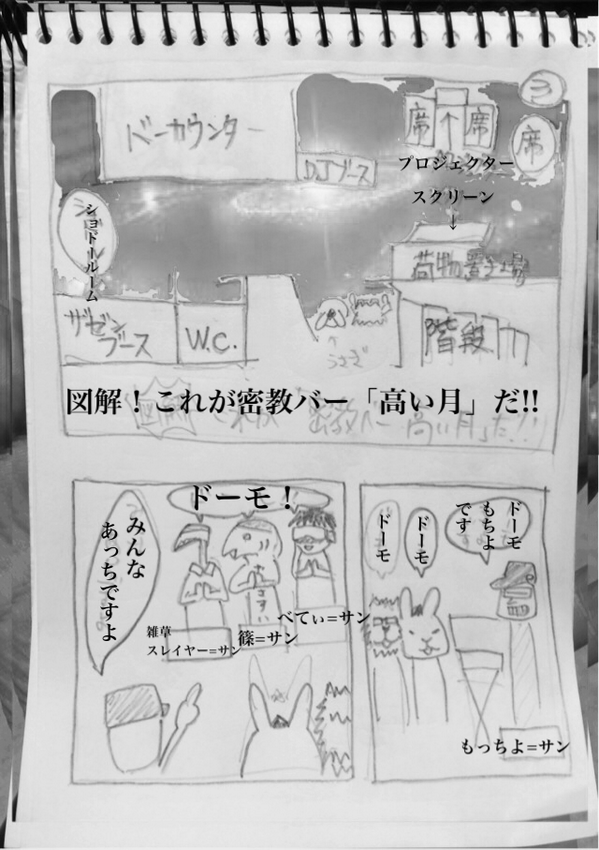 3
バーカウンター
DJブース
席
↑
席
席
プロジェクター
スクリーン
↓
ショドールーム
荷物置き場
ザゼン
ブース
W.C.
↑
うさぎ
階段
図解！これが密教バー「高い月」だ!!
ドーモ
もちよ
です
ドーモ
ドーモ
もっちよ=サン
ドーモ！
みんな
あっちですよ
べてぃ=サン
篠=サン
雑草
スレイヤー=サン